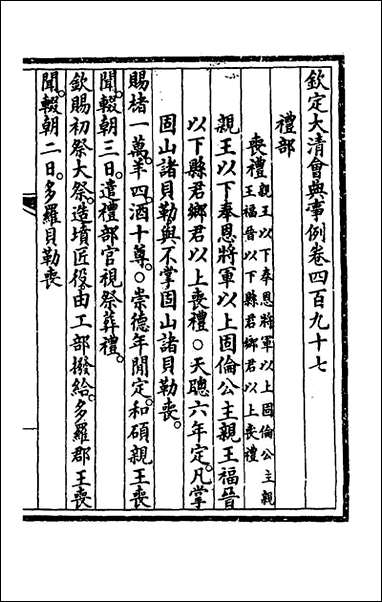 欽定大清會典事例卷四百九十七
禮部
喪禮親王以下奉恩將軍以上固倫公主親
王福晉以下縣君鄉君以上喪禮
親王以下奉恩將軍以上固倫公主親王福晉
以下縣君鄉君以上喪禮○天聰六年定凡掌
固山諸貝勒與不掌固山諸貝勒喪。
賜楮一萬。羊四。酒十尊。○崇德年閒定。和碩親王喪
聞。輟朝三日。遣禮部官視祭葬禮。
欽賜初祭大祭。造墳匠役由工部撥給。多羅郡王喪
聞。輟朝二日。多羅貝勒喪